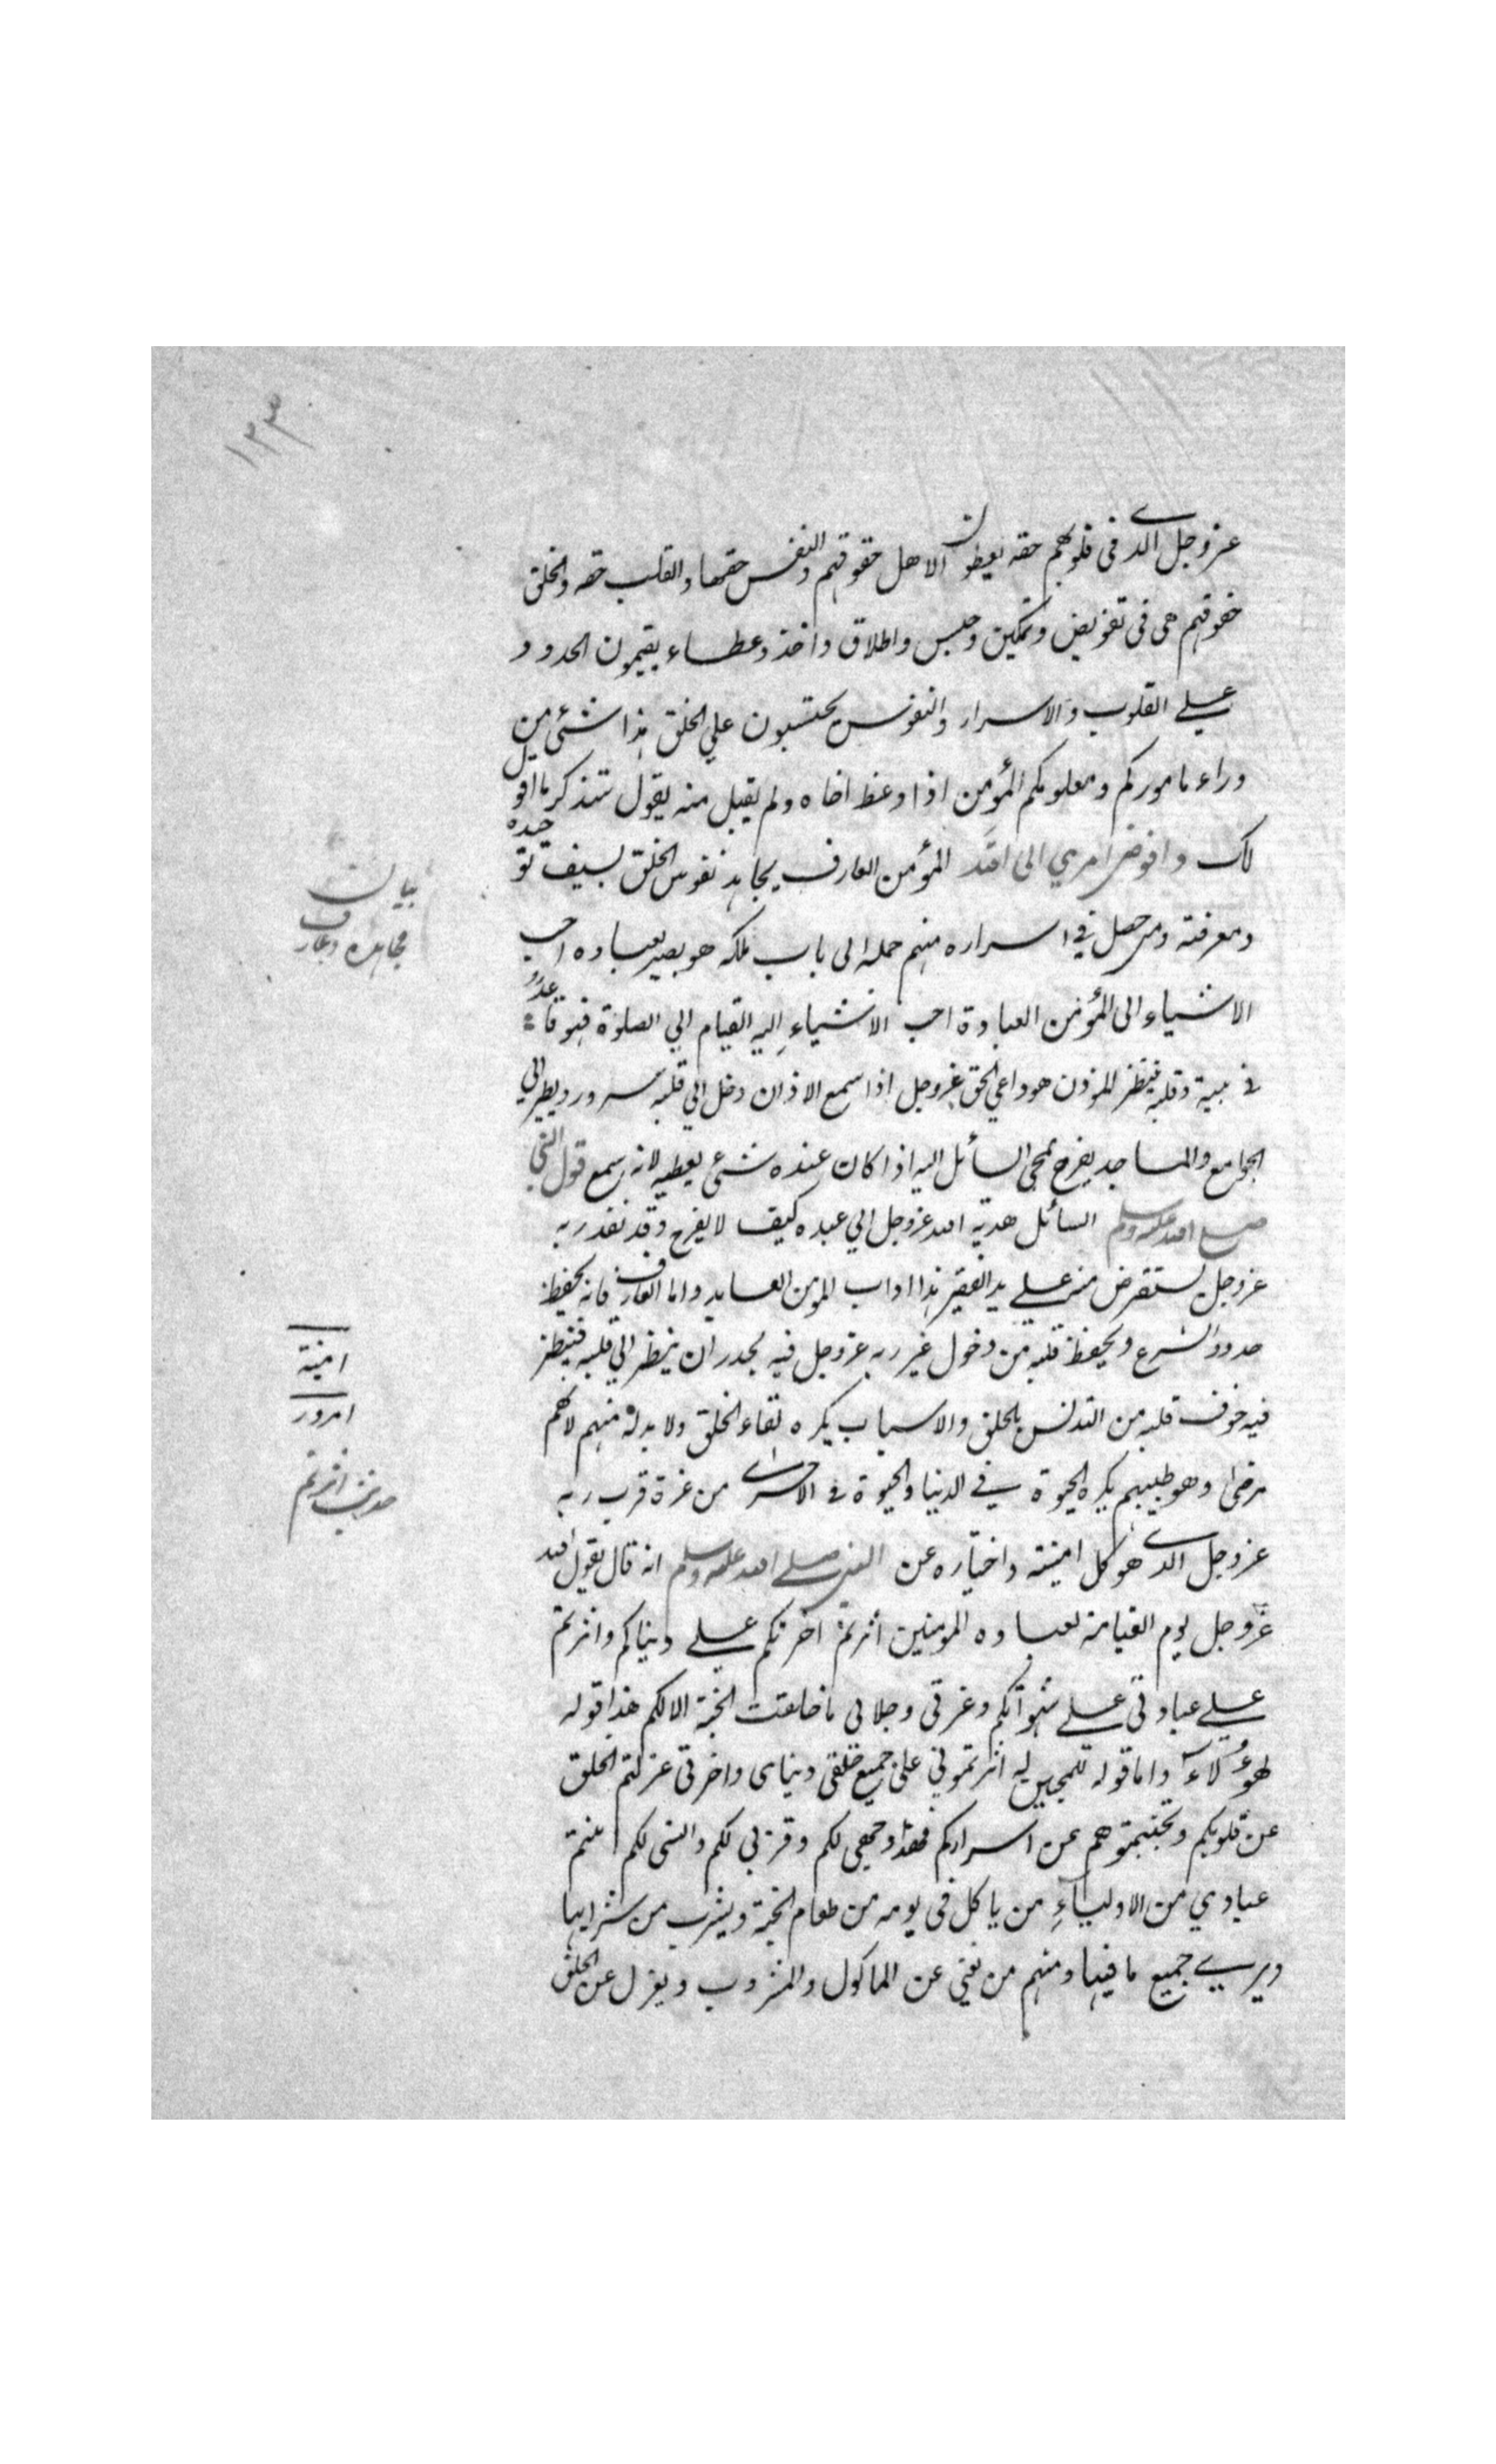 ١٣٣
عز وجل الذي في قلوبهم حقه يعطون الاهل حقوقهم والنفس حقها والقلب حقه والخلق
حقوقهم هي في تفويض وتمكين وحبس واطلاق واخذ وعطاء يقيمون الحدود
علي القلوب والاسرار والنفوس يحتسبون علي الخلق هذا شئ من
وراء ماموركم ومعلومكم المؤمن اذا وعظ اخاه ولم يقبل منه يقول ستذكر ما اقول
لك وافوض امري الى الله المؤمن العارف يجاهد نفوس الخلق بسيف توحيده
ومعرفته ومن حصل في اسراره منهم حمله الى باب ملكه هو بصير بعباده احب
الاشياء الى المؤمن العبادة احب الاشياء اليه القيام الي الصلوة فهو قاعد
في بيته وقلبه ينتظر للموذن هو داعي الحق عز وجل اذا سمع الاذان دخل الي قلبه سرور ويطير الي
الجوامع والمساجد يفرح بمجي السائل اليه اذا كان عنده شئ يعطيه لانه سمع قول النبي
صلي الله عليه وسلم السائل هدية الله عز وجل الي عبده كيف لا يفرح وقد نفذ ربه
عز وجل يستقرض منه علي يد الفقير هذا اداب المومن العابد واما العارف فانه يحفظ
حدود الشرع ويحفظ قلبه من دخول غير ربه عز وجل فيه يحذر ان ينظر الي قلبه فينظر
فيه خوف قلبه من التدنس بالخلق والاسباب يكره لقاء الخلق ولا بد له منهم لانهم
مرضى وهو طبيبهم يكره الحيوة في الدنيا والحيوة في الاخرى من غرة قرب ربه
عز وجل الذي هو كل امنيته واختياره عن النبي صلي الله عليه وسلم انه قال يقول الله
عز وجل يوم القيامة لعباده المومنين اثرتم اخرتكم علي دنياكم واثرتم
علي عبادتي علي شهواتكم وعزتي وجلالي ما خلقت الجنة الا لكم هذا قوله
لهؤلاء واما قوله للمحبين له اثرتموني على جميع خلقي دنياى واخرتي عزلتم الخلق
عن قلوبكم وتجنبتموهم عن اسراركم فهذا وجهي لكم وقربي لكم وانسى لكم انتم
عبادي من الاولياء من ياكل في يومه من طعام الجنة ويشرب من شرابها
ويري جميع ما فيها ومنهم من يفني عن الماكول والمشروب ويعزل عن الخلق
بيان
مجاهده وعارف
امنية
امرور
حديث اثرتم